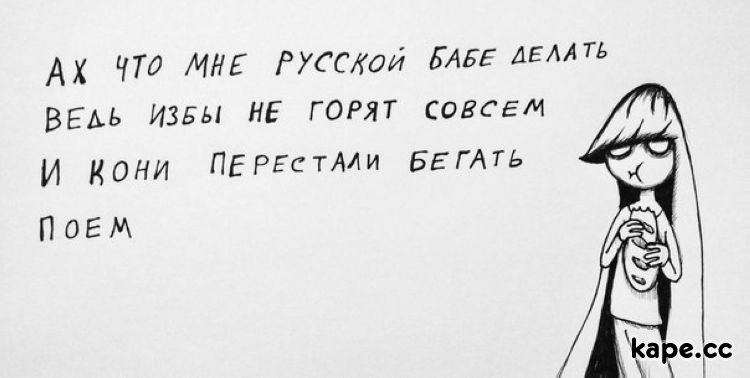 АХ ЧТО МНЕ РУССКОЙ БАБЕ ДЕЛАТЬ
ВЕДЬ ИЗБЫ НЕ ГОРЯТ СОВСЕМ
И КОНИ ПЕРЕСТАЛИ БЕГАТЬ
ПОЕМ
kape.cc